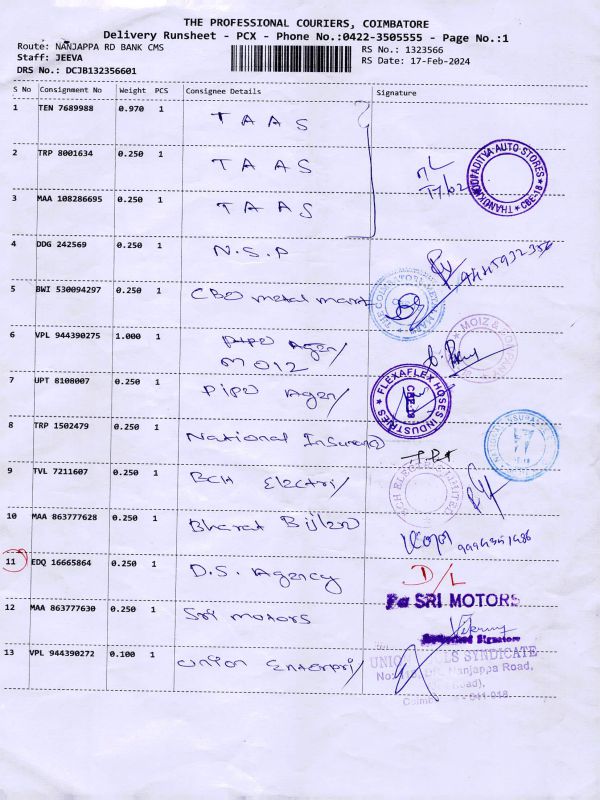 THE PROFESSIONAL COURIERS, COIMBATORE
Delivery Runsheet - PCX - Phone No.:0422-3505555 - Page No.:1
Route: NANJAPPA RD BANK CMS
RS No.: 1323566
Staff: JEEVA
RS Date: 17-Feb-2024
DRS No.: DCJB132356601
S No Consignment No Weight PCS Consignee Details Signature
1 TEN 7689988 0.970 1 TAAS
2 TRP 8001634 0.250 1 TAAS
17/02
3 MAA 108286695 0.250 1 TAAS
4 DDG 242569 0.250 1 N.S.P
5 BWI 530094297 0.250 1 CBO metal mart
6 VPL 944390275 1.000 1 pipe Agency
MOIZ
7 UPT 8108007 0.250 1 Pipe Agency
FLEXAFLEX HOSES INDUSTRIES
8 TRP 1502479 0.250 1 National Insurance
9 TVL 7211607 0.250 1 BCH Electri
10 MAA 863777628 0.250 1 Bharat Bijlee
11 EDQ 16665864 0.250 1 D.S. Agency D/L
12 MAA 863777630 0.250 1 Sri motors
SRI MOTORS
13 VPL 944390272 0.100 1 union Enterpri
SYNDICATE
Nanjappa Road,